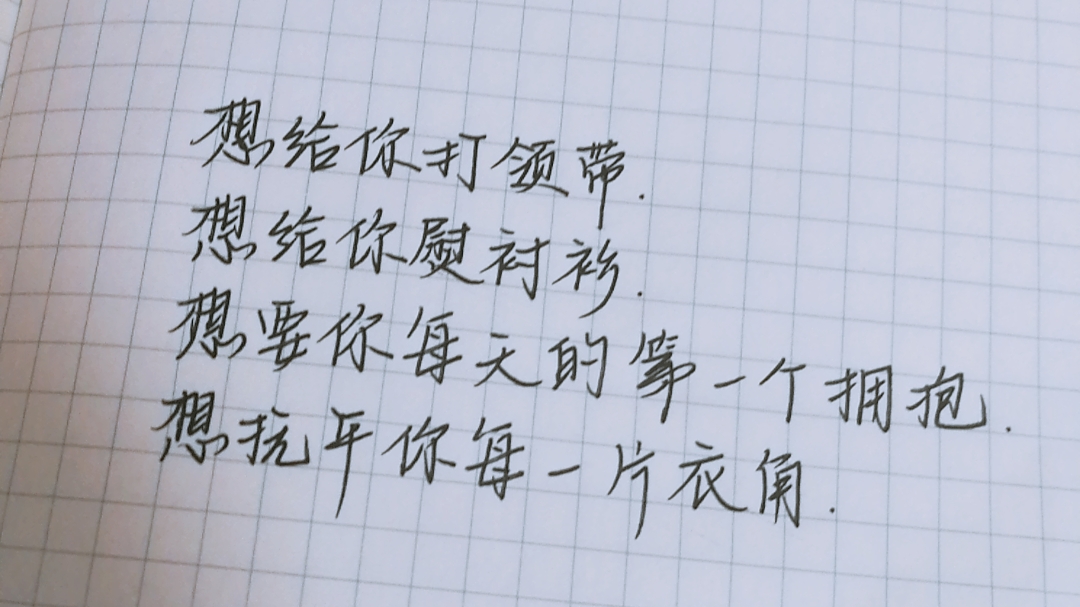 想给你打领带.
想给你熨衬衫.
想要你每天的第一个拥抱.
想抚平你每一片衣角.